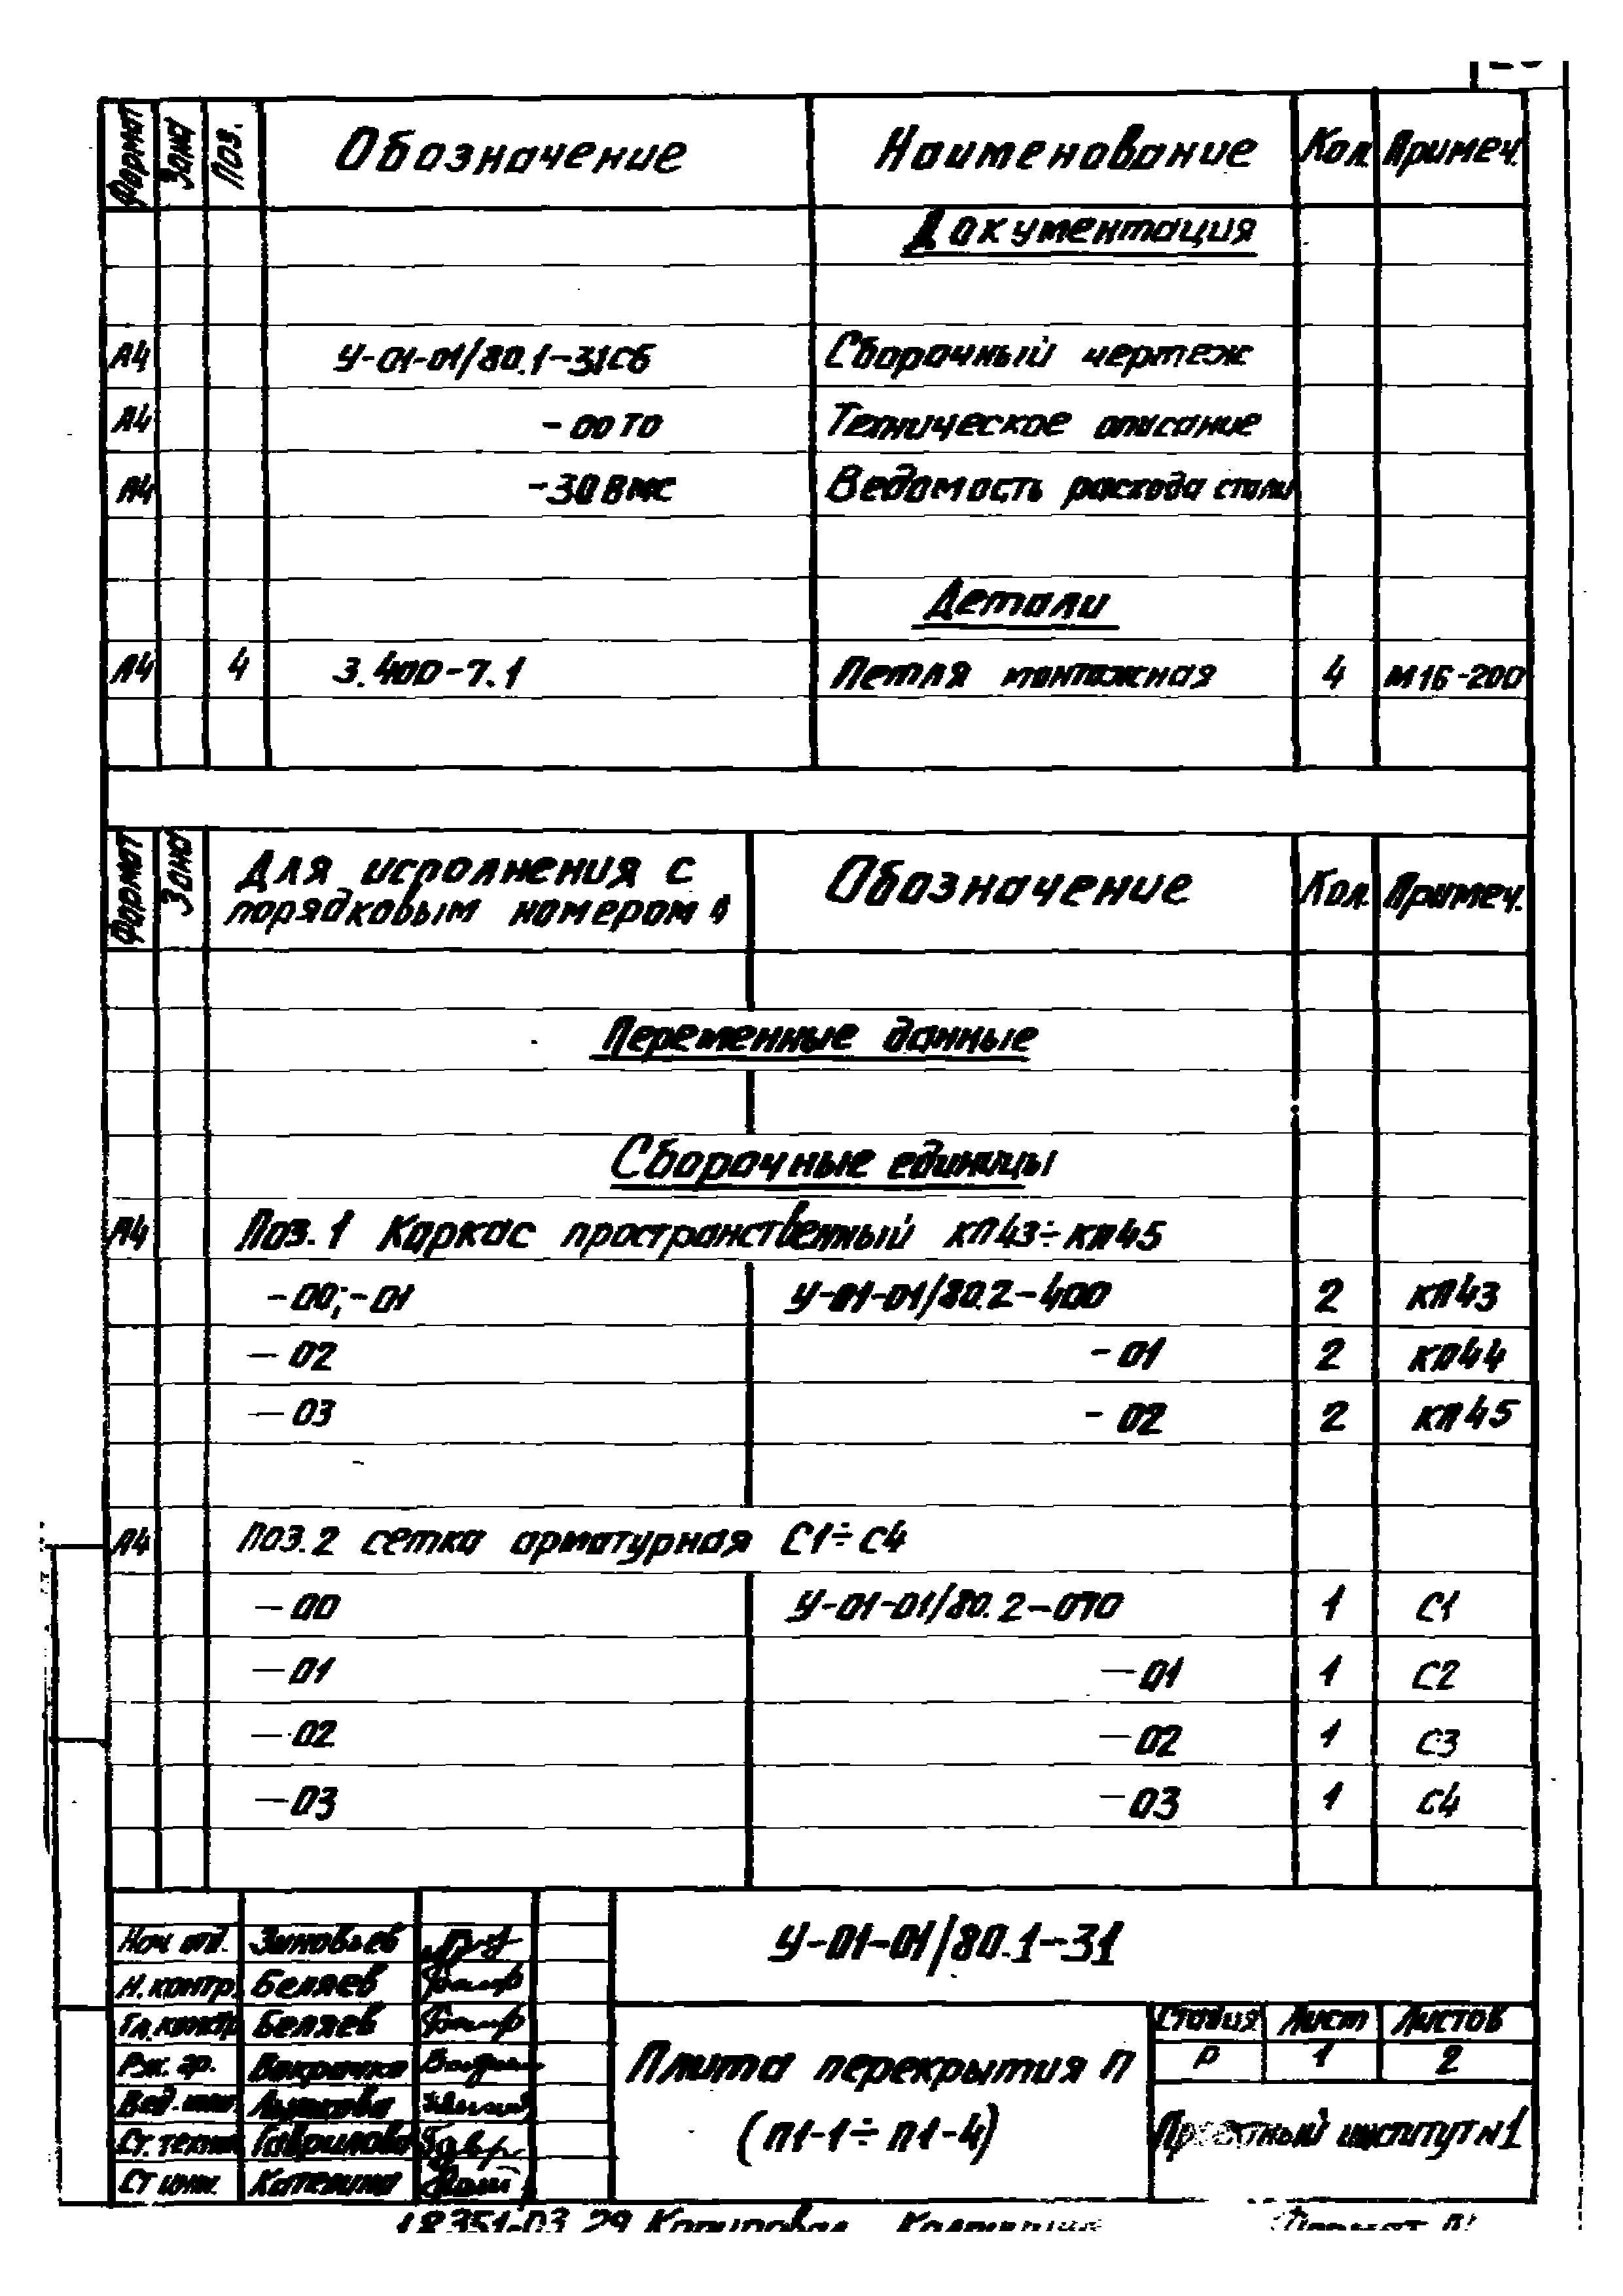 Формат Зона Поз. Обозначение Наименование Кол. Примеч.
Документация
А4 У-01-01/80.1-31СБ Сборочный чертеж
А4 -00 ТО Техническое описание
А4 -30 ВМС Ведомость расхода стали
Детали
А4 4 3.400-7.1 Петля монтажная 4 М16-200
Формат Зона Для исполнения с порядковым номером Обозначение Кол. Примеч.
Переменные данные
Сборочные единицы
А4 Поз. 1 Каркас пространственный КП43÷КП45
-00;-01 У-01-01/80.2-400 2 КП43
-02 -01 2 КП44
-03 -02 2 КП45
А4 Поз. 2 сетка арматурная С1÷С4
-00 У-01-01/80.2-070 1 С1
-01 -01 1 С2
-02 -02 1 С3
-03 -03 1 С4
Нач. отд. Зиновьев
Н. контр. Беляев
Гл. констр. Беляев
Рук. гр.
Вед. инж.
Ст. техник Гаврилова
Ст. инж. Катетина
У-01-01/80.1-31
Плита перекрытия П
(П1-1÷П1-4)
Стадия Лист Листов
Р 1 2
Проектный институт №1
18351-03 29 Копировал Формат